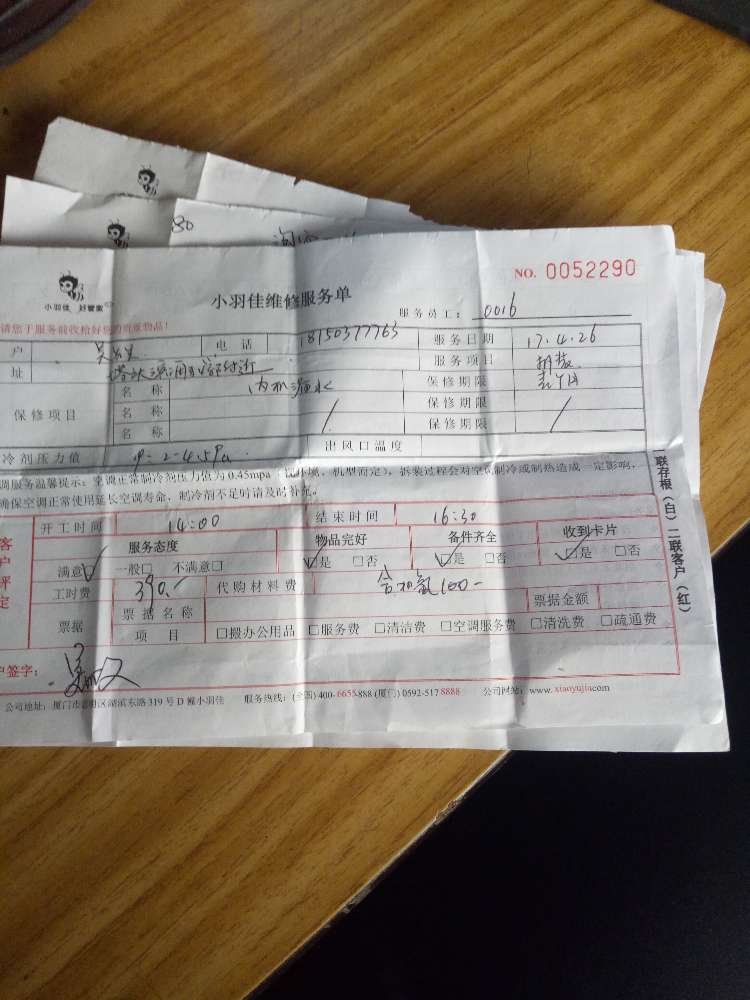 80
NO. 0052290
小羽佳 好管家
小羽佳维修服务单
服务员工： 0016
请您于服务前收检好您的贵重物品！
户 电话 18750377763 服务日期 17.4.26
址 服务项目
保修项目 名称 内机漏水 保修期限
名称 保修期限
名称 保修期限
冷剂压力值 出风口温度
调服务温馨提示：空调正常制冷剂压力值为0.45mpa（视环境、机型而定），拆装过程会对空调制冷或制热造成一定影响，
确保空调正常使用延长空调寿命，制冷剂不足时请及时补充。
开工时间 14:00 结束时间 16:30
客户评定
服务态度 物品完好 备件齐全 收到卡片
满意☑ 一般□ 不满意□ ☑是 □否 ☑是 □否 ☑是 □否
工时费 390.- 代购材料费 含加氟100-
票据 票据名称 票据金额
项目 □搬办公用品 □服务费 □清洁费 □空调服务费 □清洗费 □疏通费
户签字：
公司地址：厦门市思明区湖滨东路319号D幢小羽佳 服务热线：(全国)400-6655-888 (厦门)0592-517 8888 公司网站：www.xiaoyujia.com
联存根（白）二联客户（红）